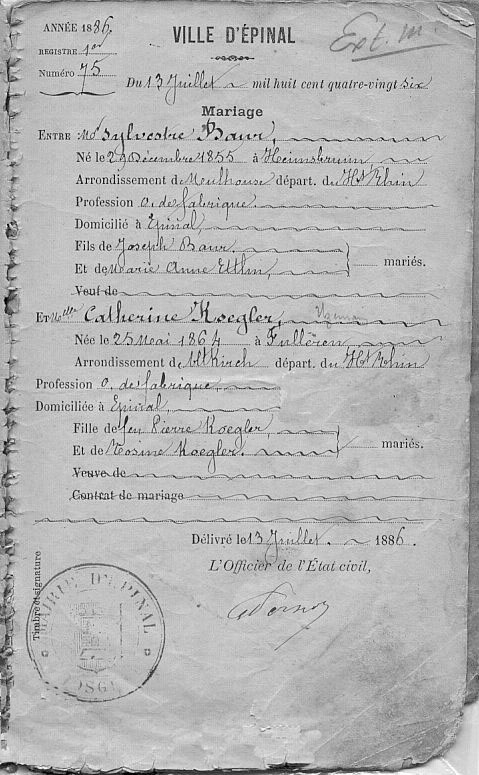 ANNÉE 1886.
REGISTRE 1er
Numéro 75
VILLE D'ÉPINAL
Ext. m.
Du 13 Juillet mil huit cent quatre-vingt six
Mariage
ENTRE Mr Sylvestre Baur,
Né le 29 Décembre 1855 à Heimsbrunn,
Arrondissement de Mulhouse départ. du Ht Rhin
Profession o. de fabrique.
Domicilié à Epinal,
Fils de Joseph Baur.
Et de Marie Anne Ettlin, mariés.
Veuf de
ET Melle Catherine Koegler,
Née le 25 Mai 1864 à Fulleren,
Arrondissement de Altkirch départ. du Ht Rhin
Profession o. de fabrique,
Domiciliée à Epinal,
Fille de feu Pierre Koegler,
Et de Rosine Koegler. mariés.
Veuve de
Contrat de mariage
Délivré le 13 Juillet 1886.
L'Officier de l'État civil,
Timbre et signature
MAIRIE D'EPINAL
VOSGES